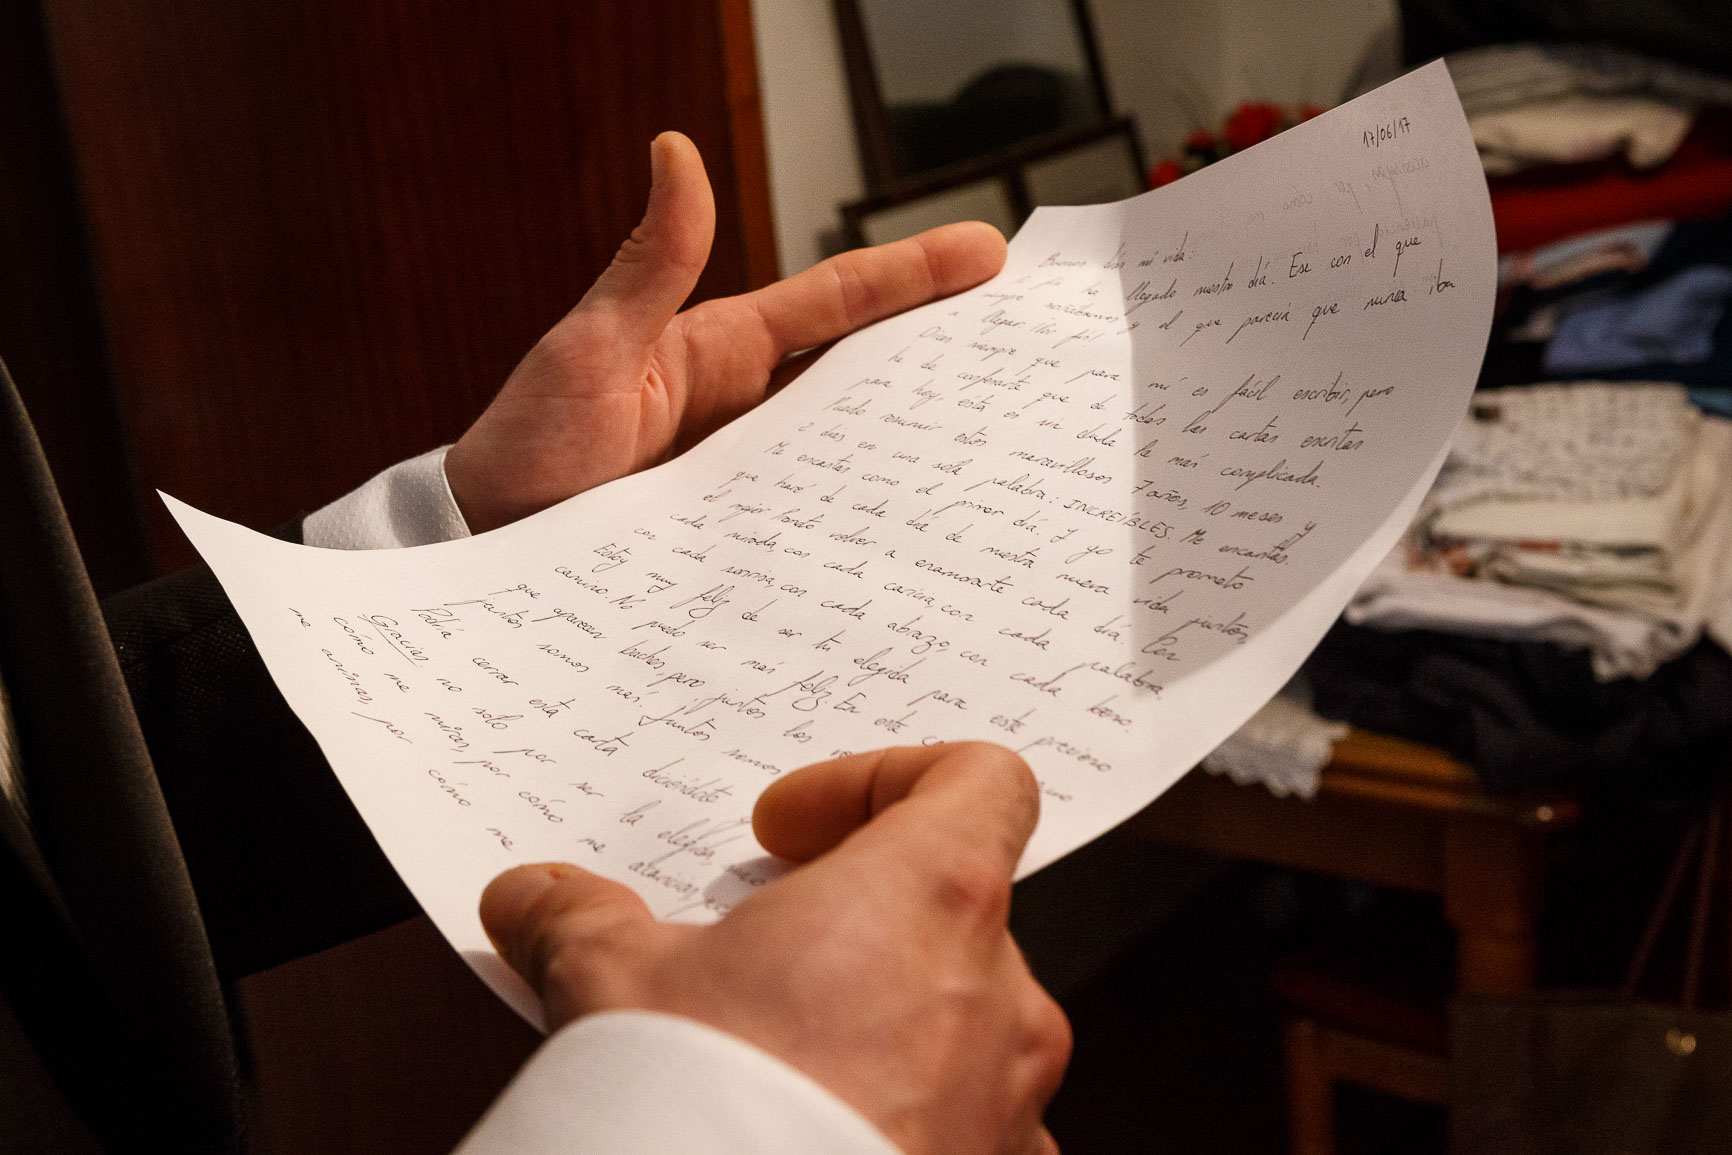 17/06/17
Buenos días mi vida:
Al fin ha llegado nuestro día. Ese con el que
siempre soñábamos y el que parecía que nunca iba
a llegar. ¡Por fin!
Dices siempre que para mí es fácil escribir, pero
he de confesarte que de todas las cartas escritas
para hoy, ésta es sin duda la más complicada.
Puedo resumir estos maravillosos 7 años, 10 meses y
2 días en una sola palabra: INCREÍBLES. Me encantas.
Me encantas como el primer día. Y yo te prometo
que haré de cada día de nuestra nueva vida juntos,
el mejor. Prometo volver a enamorarte cada día. Con
cada mirada, con cada caricia, con cada palabra,
con cada sonrisa, con cada abrazo, con cada beso.
Estoy muy feliz de ser tu elegida para este precioso
camino. No puedo ser más feliz. En este
que aparecen baches, pero juntos los
juntos somos más. Juntos somos
Podría cerrar esta carta diciéndote
Gracias no solo por ser la
cómo me miras, por cómo me acaricias,
me animas, por cómo me